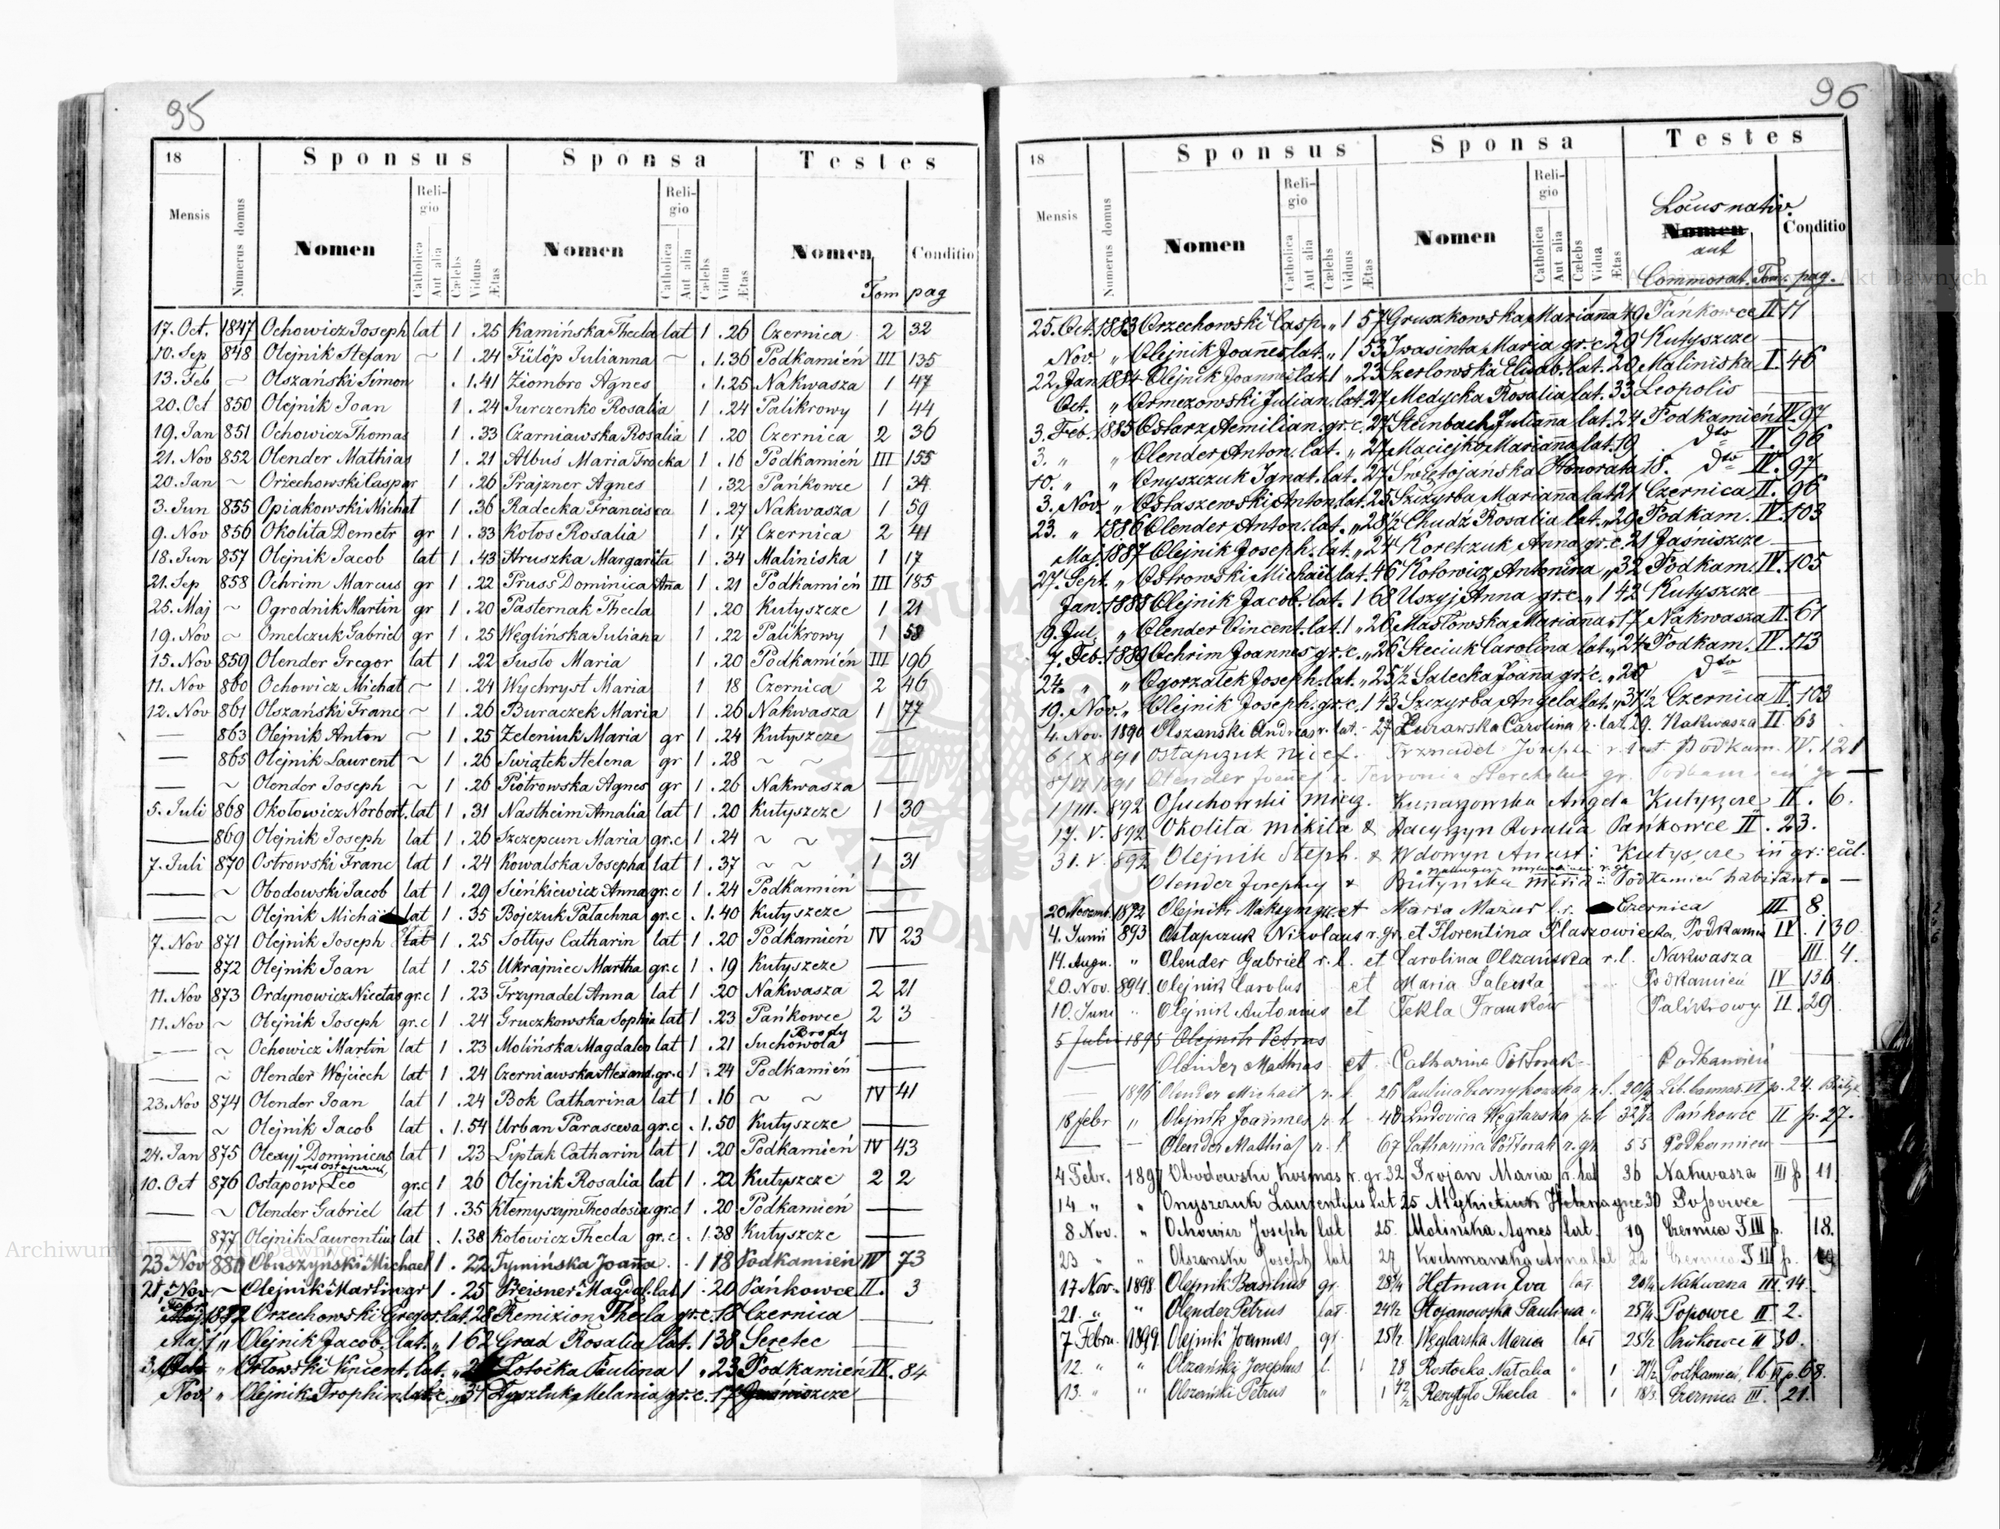 95
18 Sponsus Sponsa Testes
Mensis Numerus domus Nomen Religio Catholica Aut alia Cælebs Viduus Ætas Nomen Religio Catholica Aut alia Cælebs Vidua Ætas Nomen Conditio
Tom pag
17. Oct. 1847 Ochowicz Joseph lat 1 . 25 Kamińska Thecla lat 1 . 26 Czernica 2 32
10. Sep 848 Olejnik Stefan ~ 1 . 24 Fülöp Julianna ~ . 1. 36 Podkamień III 135
13. Feb ~ Olszański Simon . 1. 41 Ziombro Agnes . 1. 25 Nakwasza 1 47
20. Oct 850 Olejnik Joan 1 . 24 Jurczenko Rosalia 1 . 24 Palikrowy 1 44
19. Jan 851 Ochowicz Thomas 1 . 33 Czarniawska Rosalia 1 . 20 Czernica 2 36
21. Nov 852 Olender Mathias 1 . 21 Albuś Maria Trocka 1 . 16 Podkamień III 155
20. Jan ~ Orzechowski Caspar 1 . 26 Prajzner Agnes 1 . 32 Pańkowce 1 34
3. Jun 855 Opiakowski Michał 1 . 36 Radecka Francisca 1 . 27 Nakwasza 1 59
9. Nov 856 Okolita Demetr gr 1 . 33 Kotos Rosalia 1 . 17 Czernica 2 41
18. Jun 857 Olejnik Jacob lat 1 . 43 Hruszka Margarita 1 . 34 Maliniska 1 17
21. Sep 858 Ochrim Marcus gr 1 . 22 Pruss Dominica Ana 1 . 21 Podkamień III 185
25. Maj ~ Ogrodnik Martin gr 1 . 20 Pasternak Thecla 1 . 20 Kutyszcze 1 21
19. Nov ~ Omelczuk Gabriel gr 1 . 25 Węglińska Juliana 1 . 22 Palikrowy 1 58
15. Nov 859 Olender Gregor lat 1 . 22 Justo Maria 1 . 20 Podkamień III 196
11. Nov 860 Ochowicz Michał ~ 1 . 24 Wychryst Maria 1 18 Czernica 2 46
12. Nov 861 Olszański Franc ~ 1 . 26 Buraczek Maria 1 . 26 Nakwasza 1 77
— 863 Olejnik Anton ~ 1 . 25 Zeleniuk Maria gr 1 . 24 Kutyszcze —
— 865 Olejnik Laurent ~ 1 . 26 Swiątek Helena gr 1 . 28 ~ ~ —
— ~ Olender Joseph ~ 1 . 26 Piotrowska Agnes gr 1 . 26 Nakwasza —
5. Juli 868 Okołowicz Norbert. lat 1 . 31 Nastheim Amalia lat 1 . 20 Kutyszcze 1 30
— 869 Olejnik Joseph lat 1 . 26 Szczepcun Maria gr.c 1 . 24 ~ ~ —
7. Juli 870 Ostrowski Franc lat 1 . 24 Kowalska Josepha lat 1 . 37 ~ ~ 1 31
— ~ Obodowski Jacob lat 1 . 29 Sienkiewicz Anna gr.c 1 . 24 Podkamień —
— ~ Olejnik Michał lat 1 . 35 Bojczuk Palachna gr.c . 1. 40 Kutyszcze —
7. Nov 871 Olejnik Joseph lat 1 . 25 Sołtys Catharin lat 1 . 20 Podkamień IV 23
— 872 Olejnik Joan lat 1 . 25 Ukrajniec Martha gr.c 1 . 19 Kutyszcze —
11. Nov 873 Ordynowicz Nicetas gr.c 1 . 23 Trzynadel Anna lat 1 . 20 Nakwasza 2 21
11. Nov ~ Olejnik Joseph gr.c 1 . 24 Gruczkowska Sophia lat 1 . 23 Pańkowce 2 3
— ~ Ochowicz Martin lat 1 . 23 Molińska Magdalen lat 1 . 21 Brody Suchowola —
— ~ Olender Wojciech lat 1 . 24 Czerniawska Alexand. gr.c 1 . 24 Podkamień —
23. Nov 874 Olender Joan lat 1 . 24 Bok Catharina lat 1 . 16 ~ ~ IV 41
— ~ Olejnik Jacob lat . 1. 54 Urban Parascewa gr.c . 1. 50 Kutyszcze —
24. Jan 875 Olexyj Dominicus lat 1 . 23 Liptak Catharin lat 1 . 20 Podkamień IV 43
10. Oct 876 Ostapów Leo gr.c 1 26 Olejnik Rosalia lat 1 . 22 Kutyszcze 2 2
— ~ Olender Gabriel lat 1 . 35 Kłemyszyn Theodosia gr.c 1 . 20 Podkamień —
— 877 Olejnik Laurentius lat . 1. 38 Kotowicz Thecla gr.c . 1. 38 Kutyszcze —
23 Nov 880 Obuszyński Michael 1 . 22 Tymińska Joanna . 1 18 Podkamień IV 73
21. Nov ~ Olejnik Martin gr 1 . 25 Preisner Magdal. lat 1 . 20 Pańkowce II. 3
1882 Orzechowski Gregor. lat. 28 Remizion Thecla gr.c. 18 Czernica —
Maj " Olejnik Jacob. lat. " 1 62 Grad Rosalia lat. 1 38 Seretec —
Orłowski Vincent. lat. Łotocka Paulina 1 . 23 Podkamień IV. 84
Nov. " Olejnik Trophim " 37 Melania gr.c. 17 —
96
18 Sponsus Sponsa Testes
Mensis Numerus domus Nomen Religio Catholica Aut alia Cælebs Viduus Ætas Nomen Religio Catholica Aut alia Cælebs Vidua Ætas Locus nativ. Nomen aut Commorat. Conditio Tom. pag.
25. Oct. 1883 Orzechowski Casp. " 1 57 Gruszkowska Marianna 49 Pańkowce II 11
Nov. " Olejnik Joannes lat. " 1 53 Iwasinta Maria gr.c 29 Kutyszcze —
22. Jan 1884 Olejnik Joannes lat. 1 " 23 Szerłowska Elisab. lat. 20 Maliniska I. 46
Oct. " Ormezowski Julian. lat. 27 Medycka Rosalia lat. 33 Leopolis —
3. Feb. 1885 Ostarz Aemilian. gr.c. 27 Steinbach Julianna lat. 24 Podkamień IV 97
3. " " Olender Anton. lat. " 27 Maciejko Marianna lat. 19 dto IV. 96
10. " " Onyszczuk Ignat. lat. 27 Świętojańska Honorata 18. dto IV. 97
3. Nov. " Ostaszewski Anton. lat. 25 Szczyrba Marianna lat. 21 Czernica II. 96
23. " 1886 Olender Anton. lat. " 28½ Chudź Rosalia lat. " 20 Podkam. IV. 103
Maj. 1887 Olejnik Joseph. lat. " 24 Koretczuk Anna gr.c. 21 Jasniszcze —
27. Sept. " Ostrowski Michał lat. 46 Kotowicz Antonina " 32 Podkam. IV. 105
Jan. 1888 Olejnik Jacob. lat. 1 68 Uszyj Anna gr.c. " 1 42 Kutyszcze —
19. Jul " Olender Vincent. lat. 1 " 26 Masłowska Marianna " 17 Nakwasza II. 61
7. Feb. 1889 Ochrim Joannes gr.c. " 26 Steciuk Carolina lat. " 24 Podkam. IV. 113
24. " " Ogorzałek Joseph. lat. " 25½ Salecka Joanna gr.c. " 20 dto
19. Nov. " Olejnik Joseph. gr.c. 1 43 Szczyrba Angela lat. " 31½ Czernica II. 103
4. Nov. 1890 Olszański Andreas r. lat. - 27 Żurawska Carolina r. lat. 29. Nakwasza II 63
6/IX 891 Ostapczuk Nicef. Trznadel Josepha r. lat Podkam. IV. 121
1891 Olender gr. Podkamień
1/III. 892 Osuchowski Kunaszowska Angela Kutyszcze II. 6.
17. V. 892 Okolita Mikita & Rosalia Pańkowce II. 23.
31. V. 892 Olejnik Steph. & Wdowyn Anast: Kutyszcze
Olender Josephus & Budyńska Maria Podkamień habitant —
20. Novemb. 1892 Olejnik Maksym gr. et Maria Mazur Czernica III 8
4. Junii 893 Ostapczuk Nikolaus r. gr. et Florentina Płaszowiecka, Podkamie IV. 130
14. Augu. " Olender Gabriel r. l. et Carolina Olszańska r. l. Nakwasza III. 4.
20. Nov. 894. Olejnik Carolus et Maria Salecka Podkamień IV 136
10. Juni " Olejnik Antonius et Tekla Franków Palikrowy II. 29
5 Julii 1895 Olejnik Petrus
— Olender Mathias et Catharina Półtorak Podkamień —
— 1896 Olender Michael r. l. 26 Paulina r. l. 20½
18 febr " Olejnik Joannes r. l. 48 Ludovica Węglarska r. l. 32½ Pańkowce II p. 27.
— — Olender Mathias r. l. 67 Catharina Półtorak r. gr. 55 Podkamień —
4 Febr. 1897 Obodowski Kosmas r. gr. 32 Trojan Maria r. lat 36 Nakwasza III p. 11
14 " " Onyszczuk Laurentius lat 25 Mykietiuk Helena gr.c. 30 Popowce —
8 Nov. " Ochowicz Joseph lat 25. Molinska Agnes lat. 19 Czernica T III p. 18.
23 " " Olszanski Joseph lat 27 Kochmanska lat 22 Czernica T III p. 19
17 Nov. 1898. Olejnik Basilius gr. 28¼ Hetman Eva lat 20¼ Nakwasza III. 14.
21. " " Olender Petrus lat. 24½ Stojanowska Paulina " 25¼ Popowce II 2.
7 Febru. 1899. Olejnik Joannes gr 25½ Węglarska Maria lat 23½ Pańkowce II 30.
12. " " Olszański Josephus l. 1 28 Rostocka Natalia " 1 21½ Podkamień, lb VI p. 68.
13. " " Olszański Petrus " 1 42½ Thecla " 1 Czernica III. 21.
Archiwum Główne Akt Dawnych